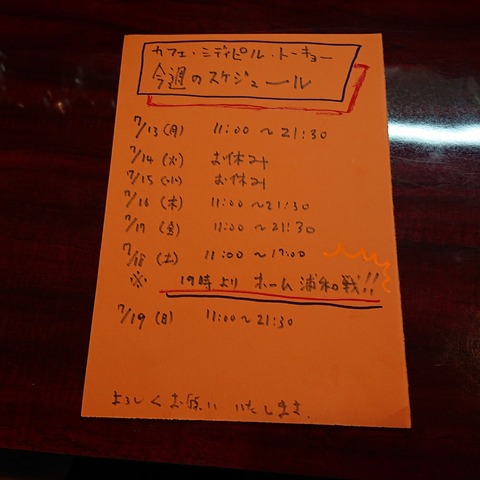 カフェ・シディピル・トーキョー
今週のスケジュール
7/13(月) 11:00~21:30
7/14(火) お休み
7/15(水) お休み
7/16(木) 11:00~21:30
7/17(金) 11:00~21:30
7/18(土) 11:00~17:00
※ 19時より ホーム浦和戦!!
7/19(日) 11:00~21:30
よろしくお願いいたします.